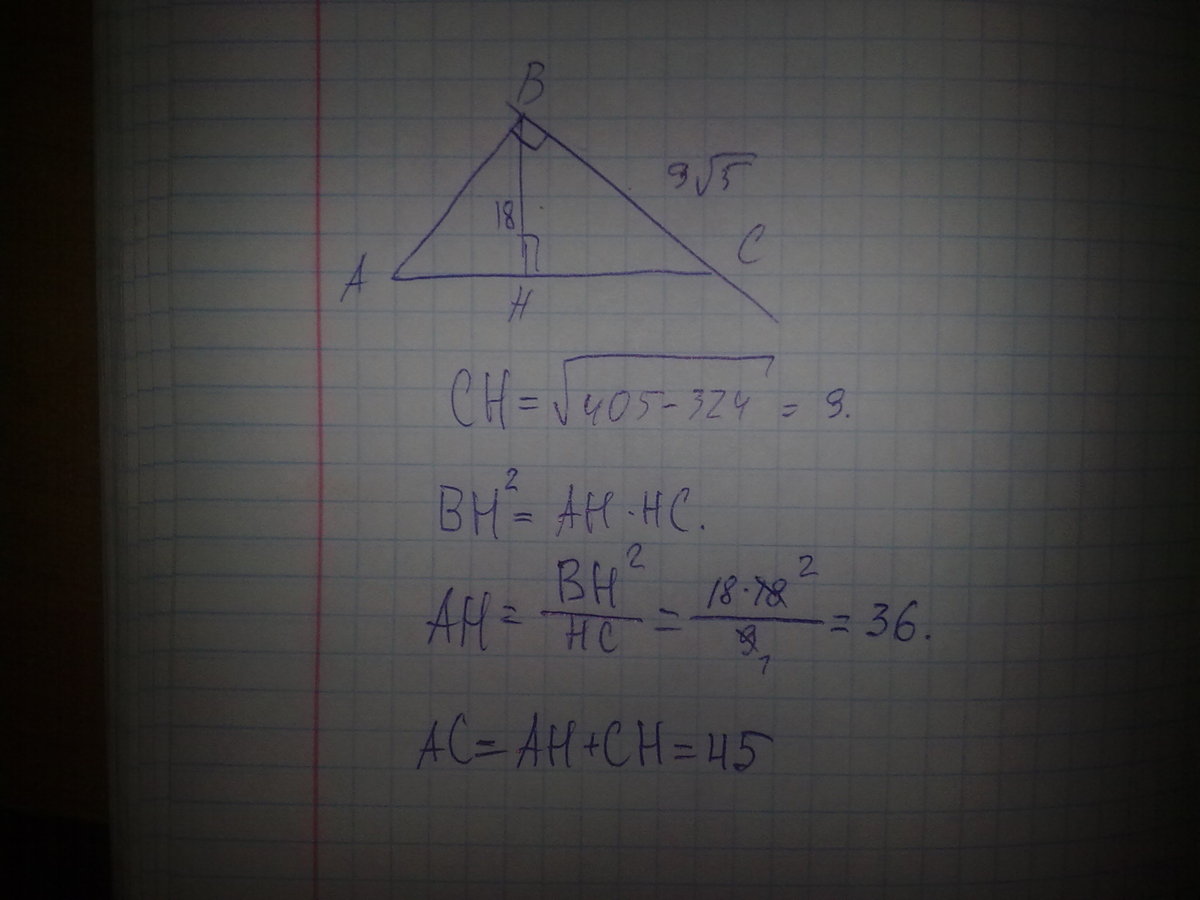 B
9√5
18
A
C
H
CH = √405-324 = 9.
BH² = AH · HC.
AH = BH²/HC = 18·18 2/9 1 = 36.
AC = AH + CH = 45